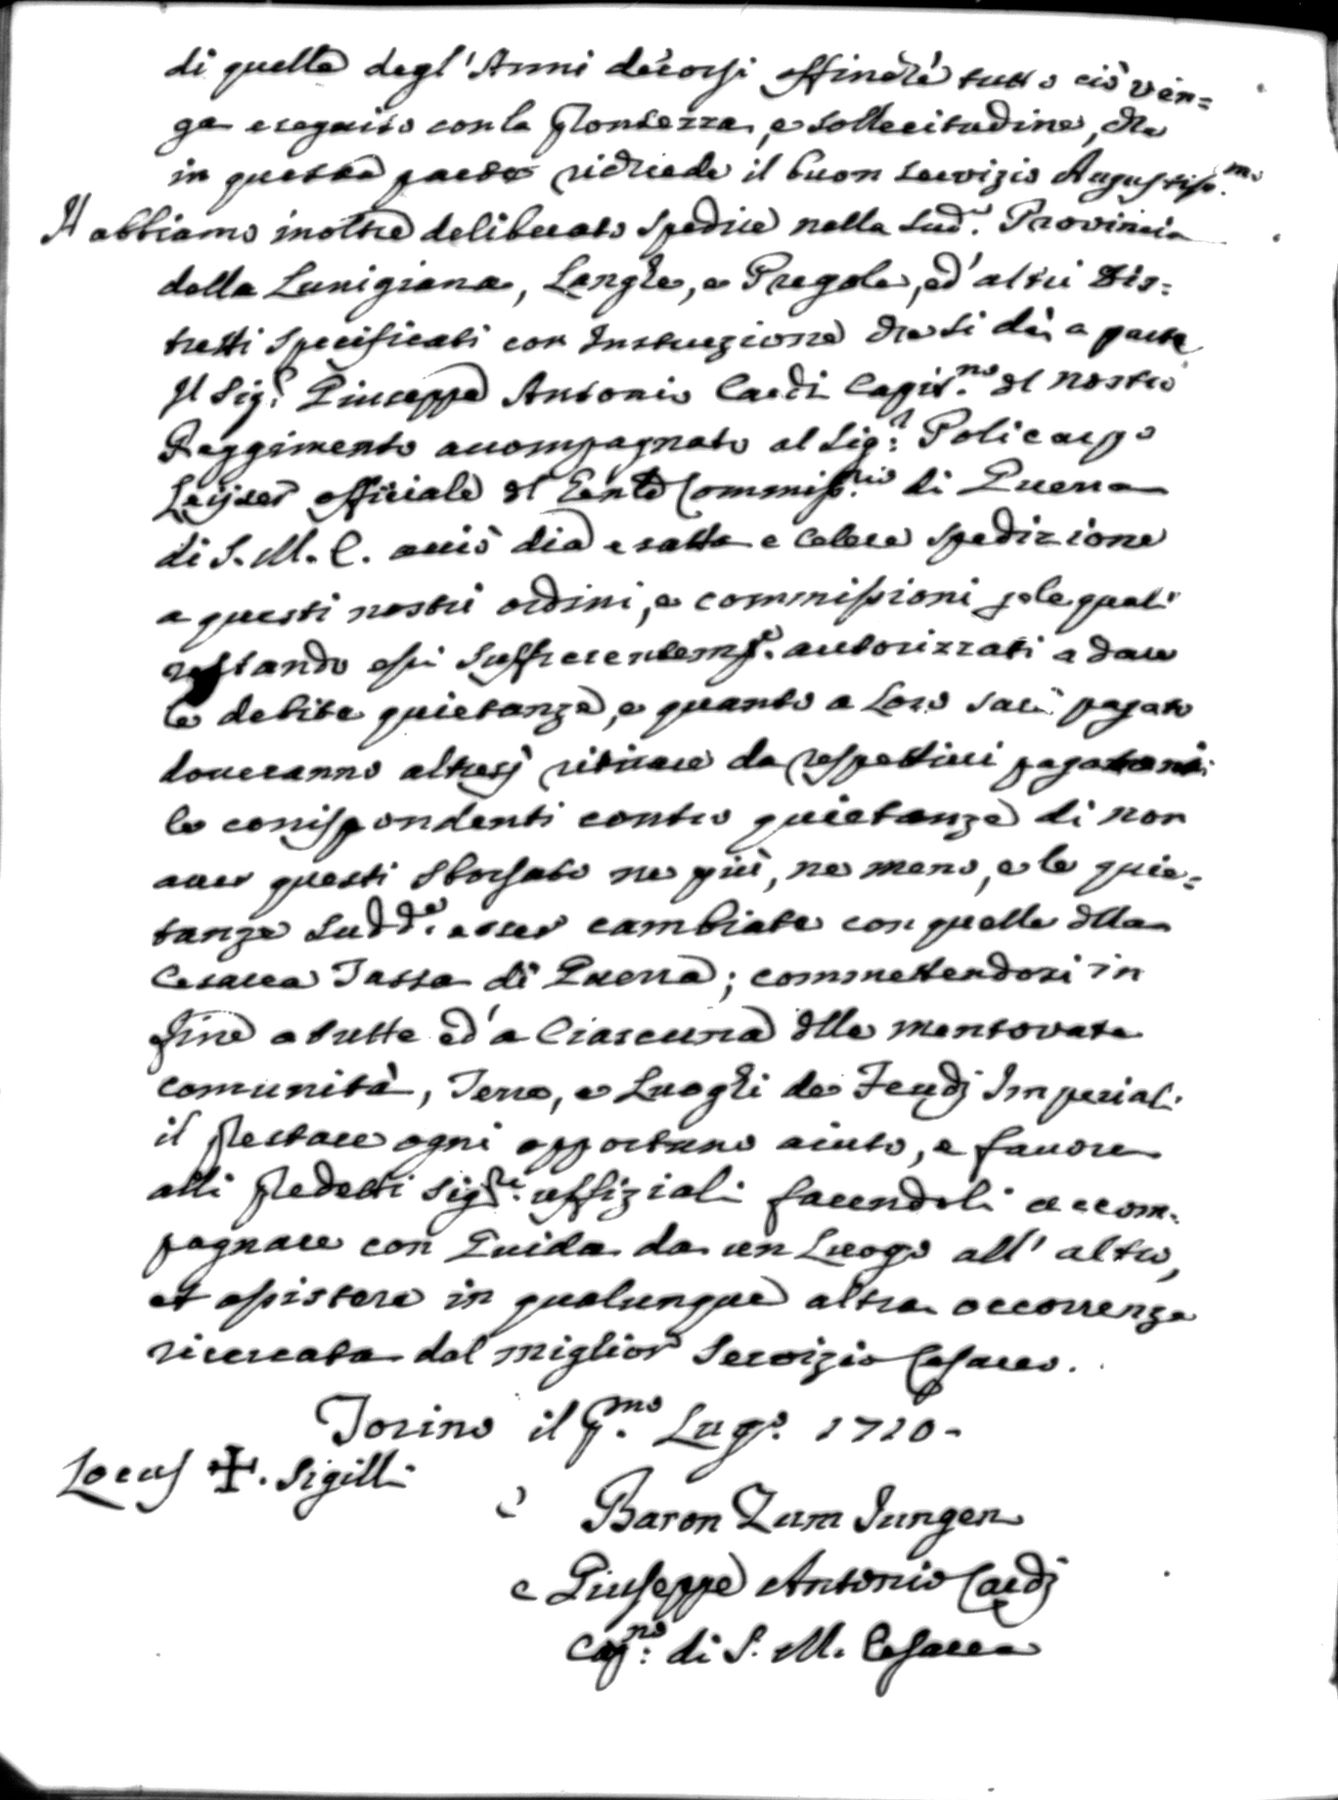 di quella degl' Anni decorsi affinche tutto ciò ven=
ga eseguito con la prontezza, e sollecitudine, che
in questa parte richiede il buon servizio Augustiss.mo
H abbiamo inoltre deliberato spedire nella Sud.a Provincia
della Lunigiana, Langhe, e Pregola, ed' altri Dis=
tretti specificati con Instruzione che si dà a parte
Il Sig.r Giuseppe Antonio Cardi Capit.no del nostro
Reggimento accompagnato al Sig.r Policarpo
Leijser officiale del Commiss.rio di Guerra
di S. M. C. acciò dia esatta e celere spedizione
a questi nostri ordini, e commissioni p le quali
restando essi sufficientem.te autorizzati a dare
le debite quietanze, e quanto a Loro sarà pagato
doveranno altresì ritirare da respettivi pagatori
le corrispondenti contro quietanze di non
aver questi sborsato ne più, ne meno, e le quie=
tanze Sudd.e esser cambiate con quelle della
Cesarea Tassa di Guerra; commettendosi in
fine a tutte ed' a Ciascuna delle mentovate
comunità, Terre, e Luoghi de Feudj Imperiali
il prestare ogni opportuno aiuto, e favore
alli predetti Sig.ri uffiziali facendoli accom=
pagnare con Guida da un Luogo all' altro,
et assistere in qualunque altra occorrenza
ricercata dal miglior Servizio Cesareo.
Torino il p.mo Lug.o 1710-
Locus ✠. Sigilli
Baron Zum Jungen
e Giuseppe Antonio Cardj
Cap.no di S. M. Cesarea